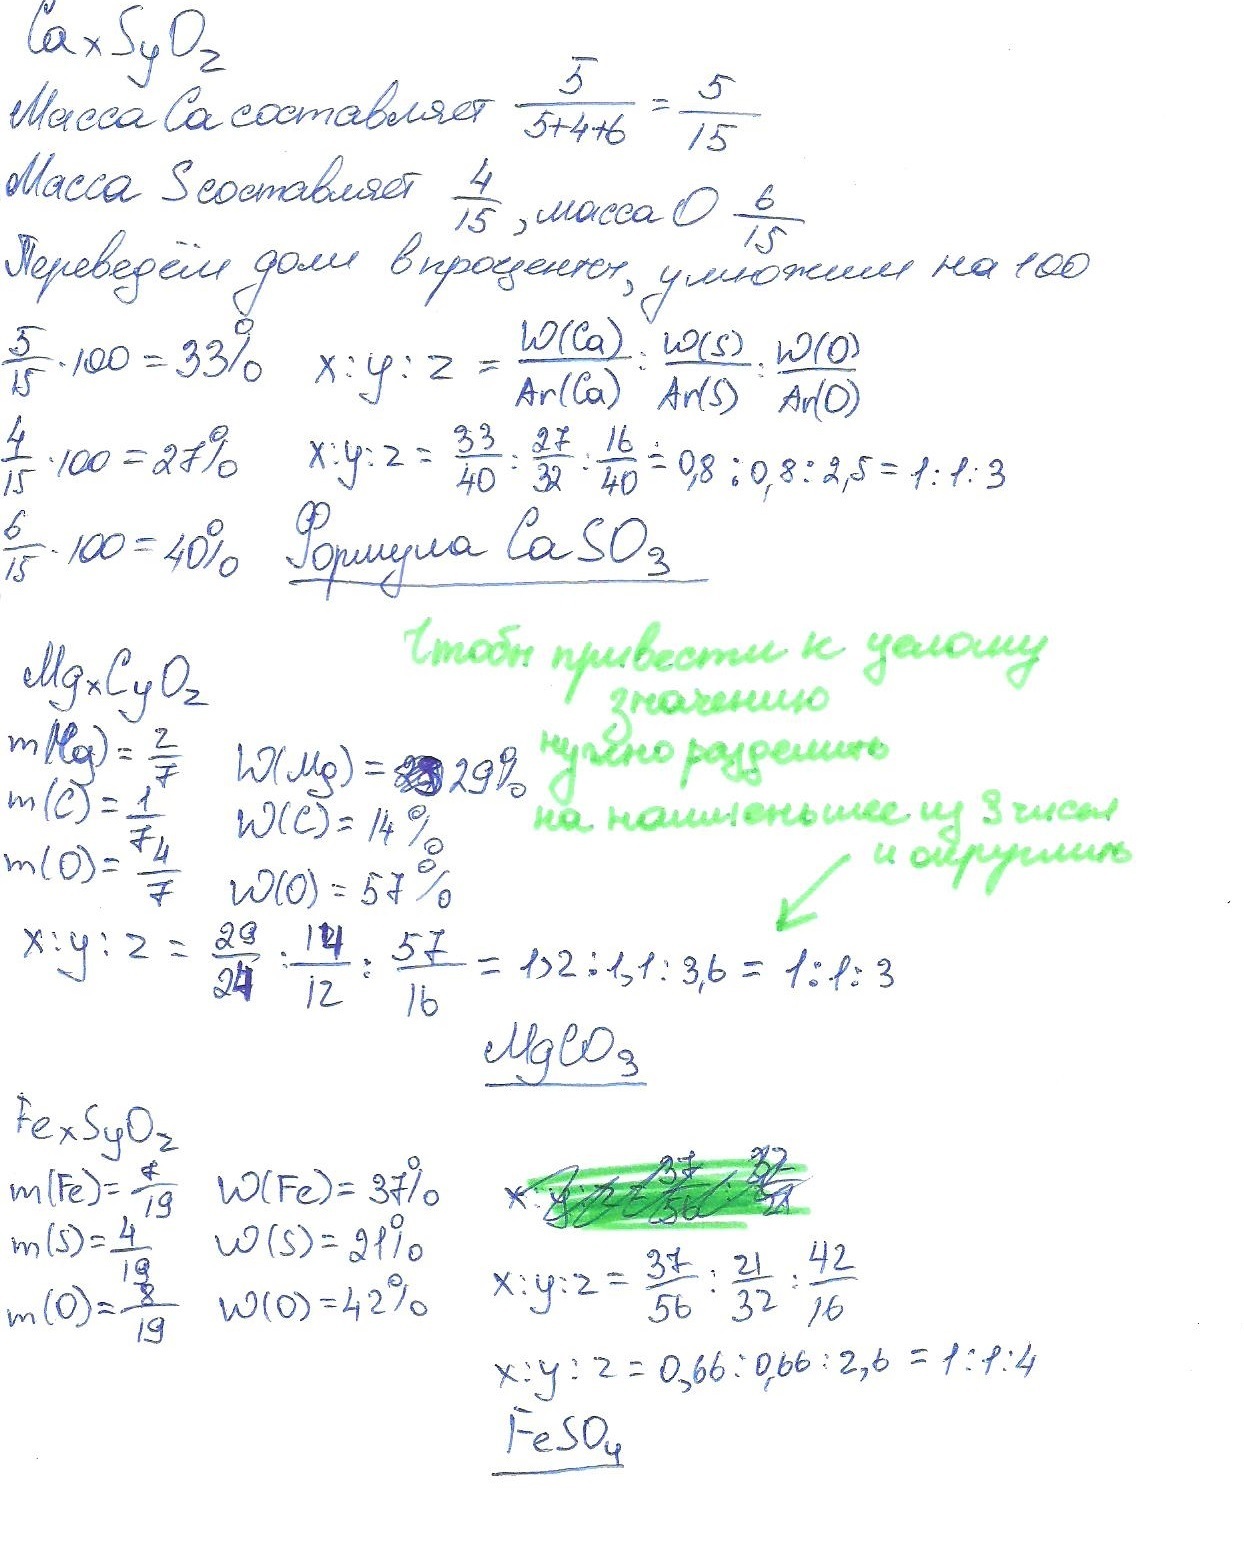 CaxSyOz
Масса Ca составляет 5/(5+4+6) = 5/15
Масса S составляет 4/15, масса O 6/15
Переведём доли в проценты, умножим на 100
5/15 · 100 = 33% x : y : z = W(Ca)/Ar(Ca) : W(S)/Ar(S) : W(O)/Ar(O)
4/15 · 100 = 27% x : y : z = 33/40 : 27/32 : 16/40 = 0,8 : 0,8 : 2,5 = 1 : 1 : 3
6/15 · 100 = 40% Формула CaSO3
Чтобы привести к целому
значению
нужно разделить
на наименьшее из 3 чисел
и округлить
MgxCyOz
m(Mg) = 2/7 W(Mg) = 29%
m(C) = 1/7 W(C) = 14%
m(O) = 4/7 W(O) = 57%
x : y : z = 29/24 : 14/12 : 57/16 = 1,2 : 1,1 : 3,6 = 1 : 1 : 3
MgCO3
FexSyOz
m(Fe) = 7/19 W(Fe) = 37%
m(S) = 4/19 W(S) = 21%
m(O) = 8/19 W(O) = 42%
x : y : z = 37/56 : 21/32 : 42/16
x : y : z = 0,66 : 0,66 : 2,6 = 1 : 1 : 4
FeSO4